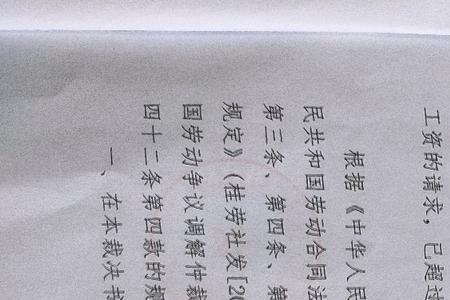 工资的请求，已超过
根据《中华人民
民共和国劳动合同法
第三条、第四条、第
规定》（桂劳社发[20
国劳动争议调解仲裁
四十二条第四款的规
一、在本裁决书